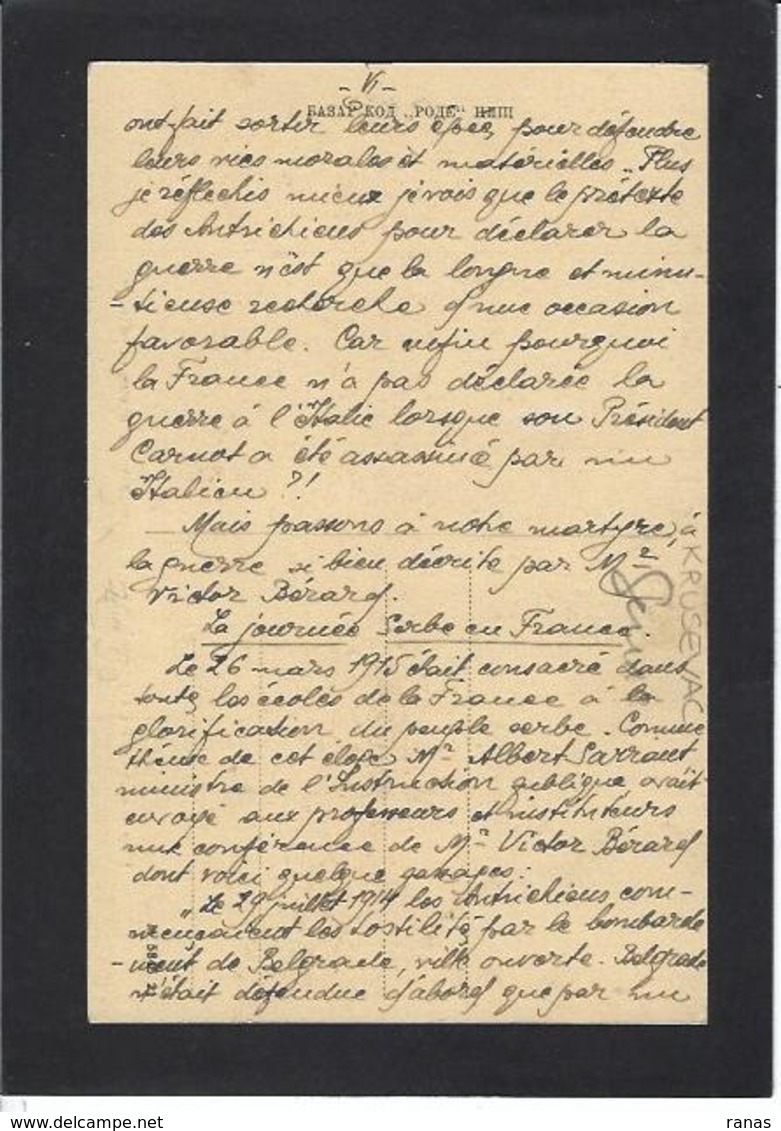 - VI -
БАЗАР КОД „РОДЕ“ НИШ
ont fait sortir leurs épée, pour défendre
leurs vies morales et matérielles. Plus
je réflechis mieux je vois que le prétexte
des Autrichiens pour déclarer la
guerre n'est que la longue et minu-
-tieuse recherche d'une occasion
favorable. Car enfin pourquoi
la France n'a pas déclarée la
guerre à l'Italie lorsque son Président
Carnot a été assassiné par un
Italien ?!
Mais passons à notre martyre, à
la guerre si bien décrite par Mr
Victor Bérard.
La journée Serbe en France.
Le 26 mars 1915 était consacré dans
toute les écoles de la France à la
glorification du peuple serbe. Comme
thème de cet éloge Mr Albert Sarraut
ministre de l'Instruction publique avait
envoyé aux professeurs et instituteurs
une conférence de Mr Victor Bérard
dont voici quelque passages:
"Le 29 juillet 1914 les Autrichiens com-
mençaient les hostilité par le bombarde
-ment de Belgrade, ville ouverte. Belgrade
n'était defendue d'abord que par un
KRUSEVAC
ranas